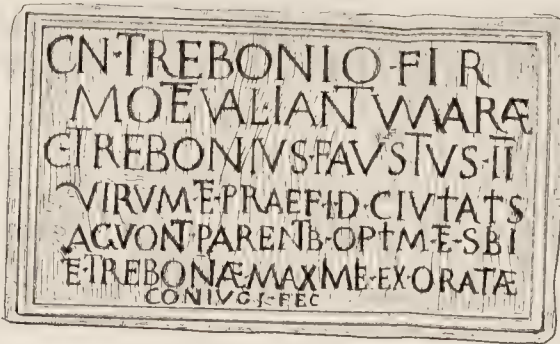 CN·TREBONIO·FIR
MO E VAL·IANTVMARÆ
C·TREBONIVS·FAVSTVS·II
VIRVM·E·PRAEF·I·D·CIVTATS
AGVONT·PARENTB·OPTM·E·SBI
E·TREBONÆ·MAXME·EX·ORATÆ
CONIVGI·FEC